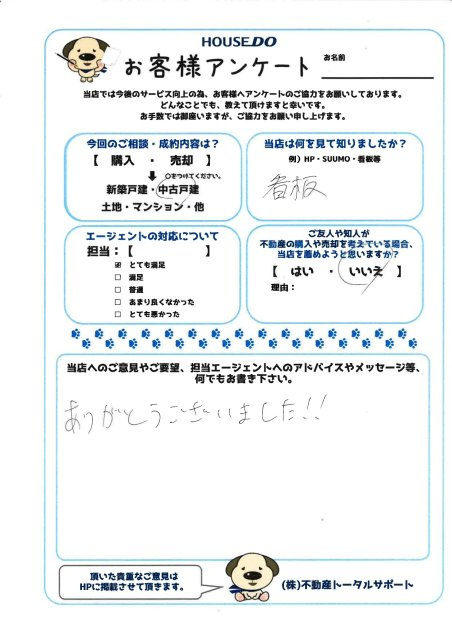 HOUSEDO
お客様アンケート
お名前
当店では今後のサービス向上の為、お客様へアンケートのご協力をお願いしております。
どんなことでも、教えて頂けますと幸いです。
お手数では御座いますが、ご協力をお願い申し上げます。
今回のご相談・成約内容は?
【 購入 ・ 売却 】
○をつけてください。
新築戸建・中古戸建
土地・マンション・他
当店は何を見て知りましたか?
例)HP・SUUMO・看板等
看板
エージェントの対応について
担当:【 】
☑ とても満足
□ 満足
□ 普通
□ あまり良くなかった
□ とても悪かった
ご友人や知人が
不動産の購入や売却を考えている場合、
当店を薦めようと思いますか?
【 はい ・ いいえ 】
理由:
当店へのご意見やご要望、担当エージェントへのアドバイスやメッセージ等、
何でもお書き下さい。
ありがとうございました!!
頂いた貴重なご意見は
HPに掲載させて頂きます。
(株)不動産トータルサポート